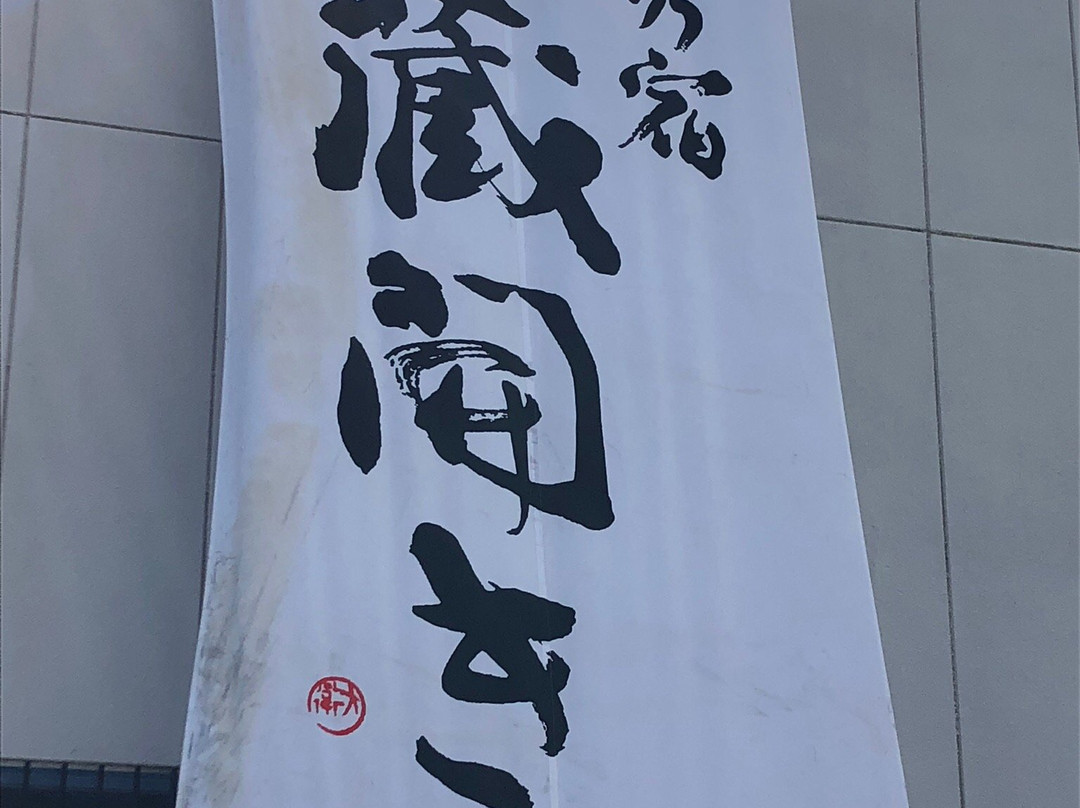 乃宿
蔵開き